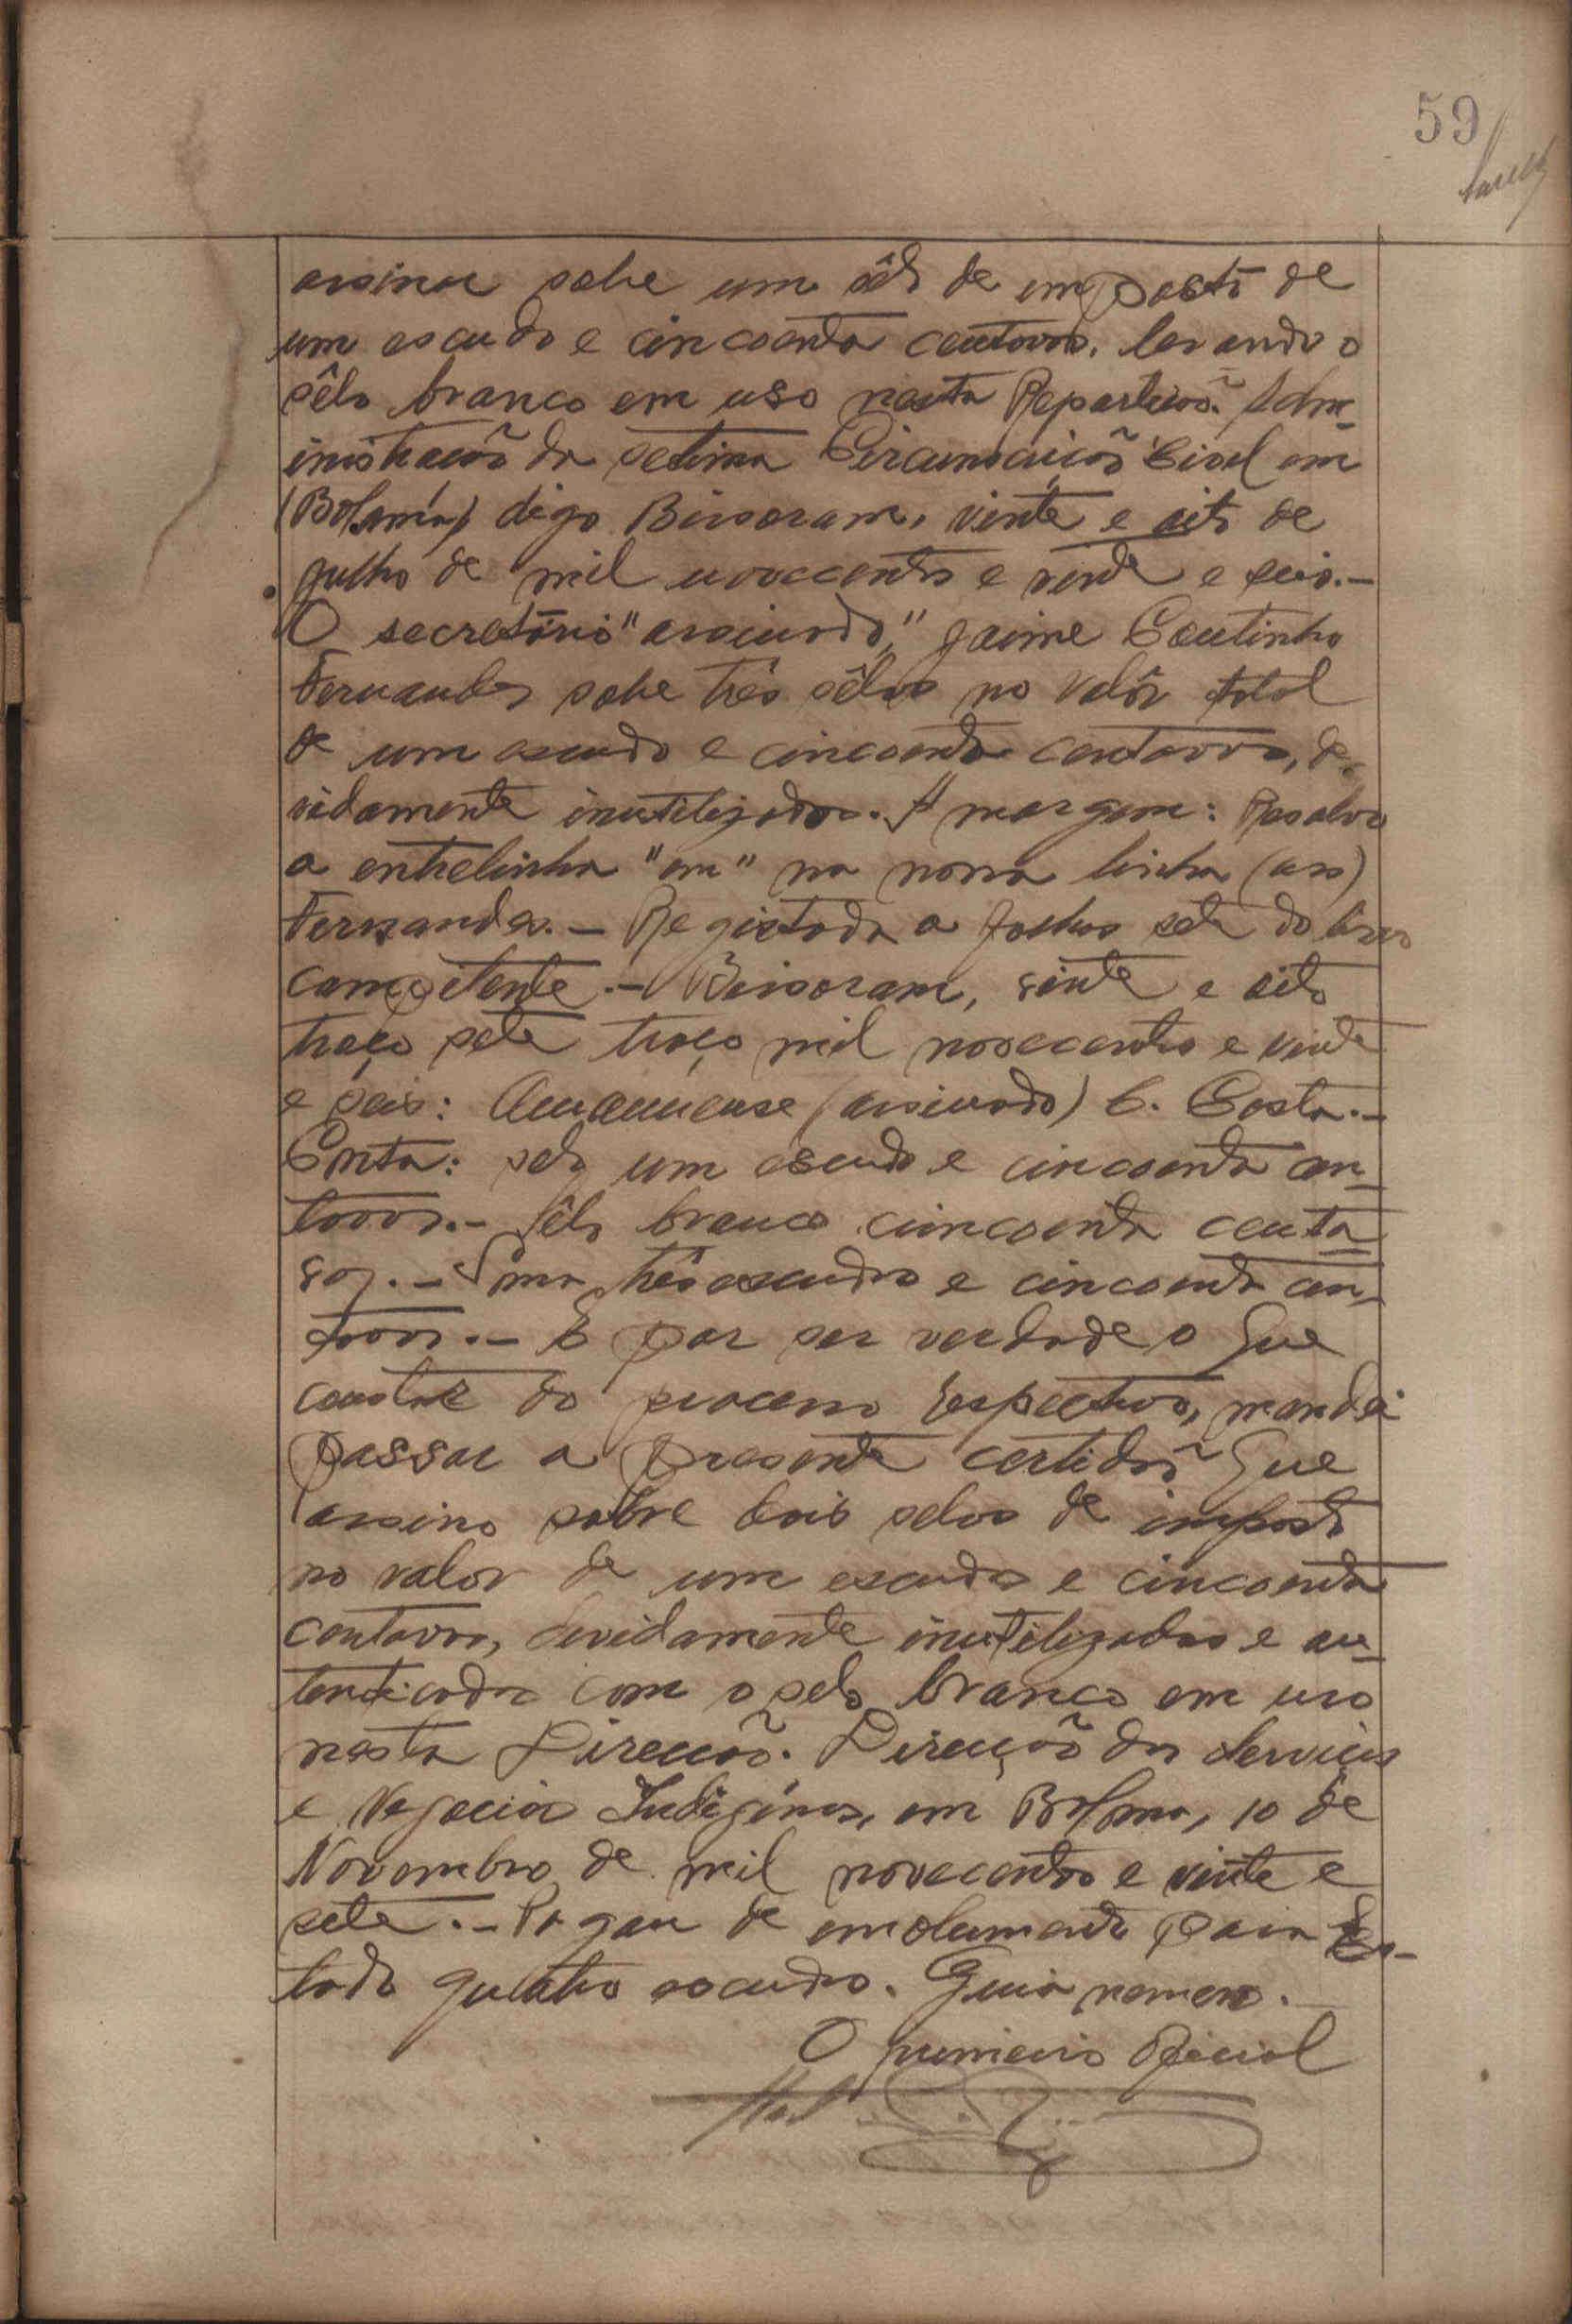 59
assinar sobre um sêlo de imposto de
um escudo e cincoenta centavos, levando o
sêlo branco em uso nesta Repartição. Adm-
inistração da setima Circunscrição Civil em
(Bolama) digo Bissoram, vinte e oito de
Julho de mil novecentos e vinte e seis.—
O secretário "assinado," Jaime Coutinho
Fernandes sobre três sêlos no valôr total
de um escudo e cincoenta centavos, de-
vidamente inutilizados. Á margem: Resalvo
a entrelinha "em" na nona linha (ass)
Fernandes.— Registada a folhas sete do livro
competente.— Bissoram, vinte e oito
traço sete traço mil novecentos e vinte
e seis: Amanuense (assinado) C. Costa.—
Conta: selo um escudo e cincoenta cen-
tavos.— Sêlo branco cincoenta centa-
vos.— Soma três escudos e cincoenta cen-
tavos.— E por ser verdade o que
constar do processo respectivo, mandei
passar a presente certidão que
assino sobre dois selos de imposto
no valor de um escudo e cincoenta
centavos, devidamente inutilizados e au-
tenticados com o selo branco em uso
nesta Direcção. Direcção dos Serviços
e Negocios Indigénas, em Bolama, 10 de
Novembro de mil novecentos e vinte e
sete.— Pagou de emolumento para Es-
tado quatro escudos. Guia numero.
O primeiro Oficial